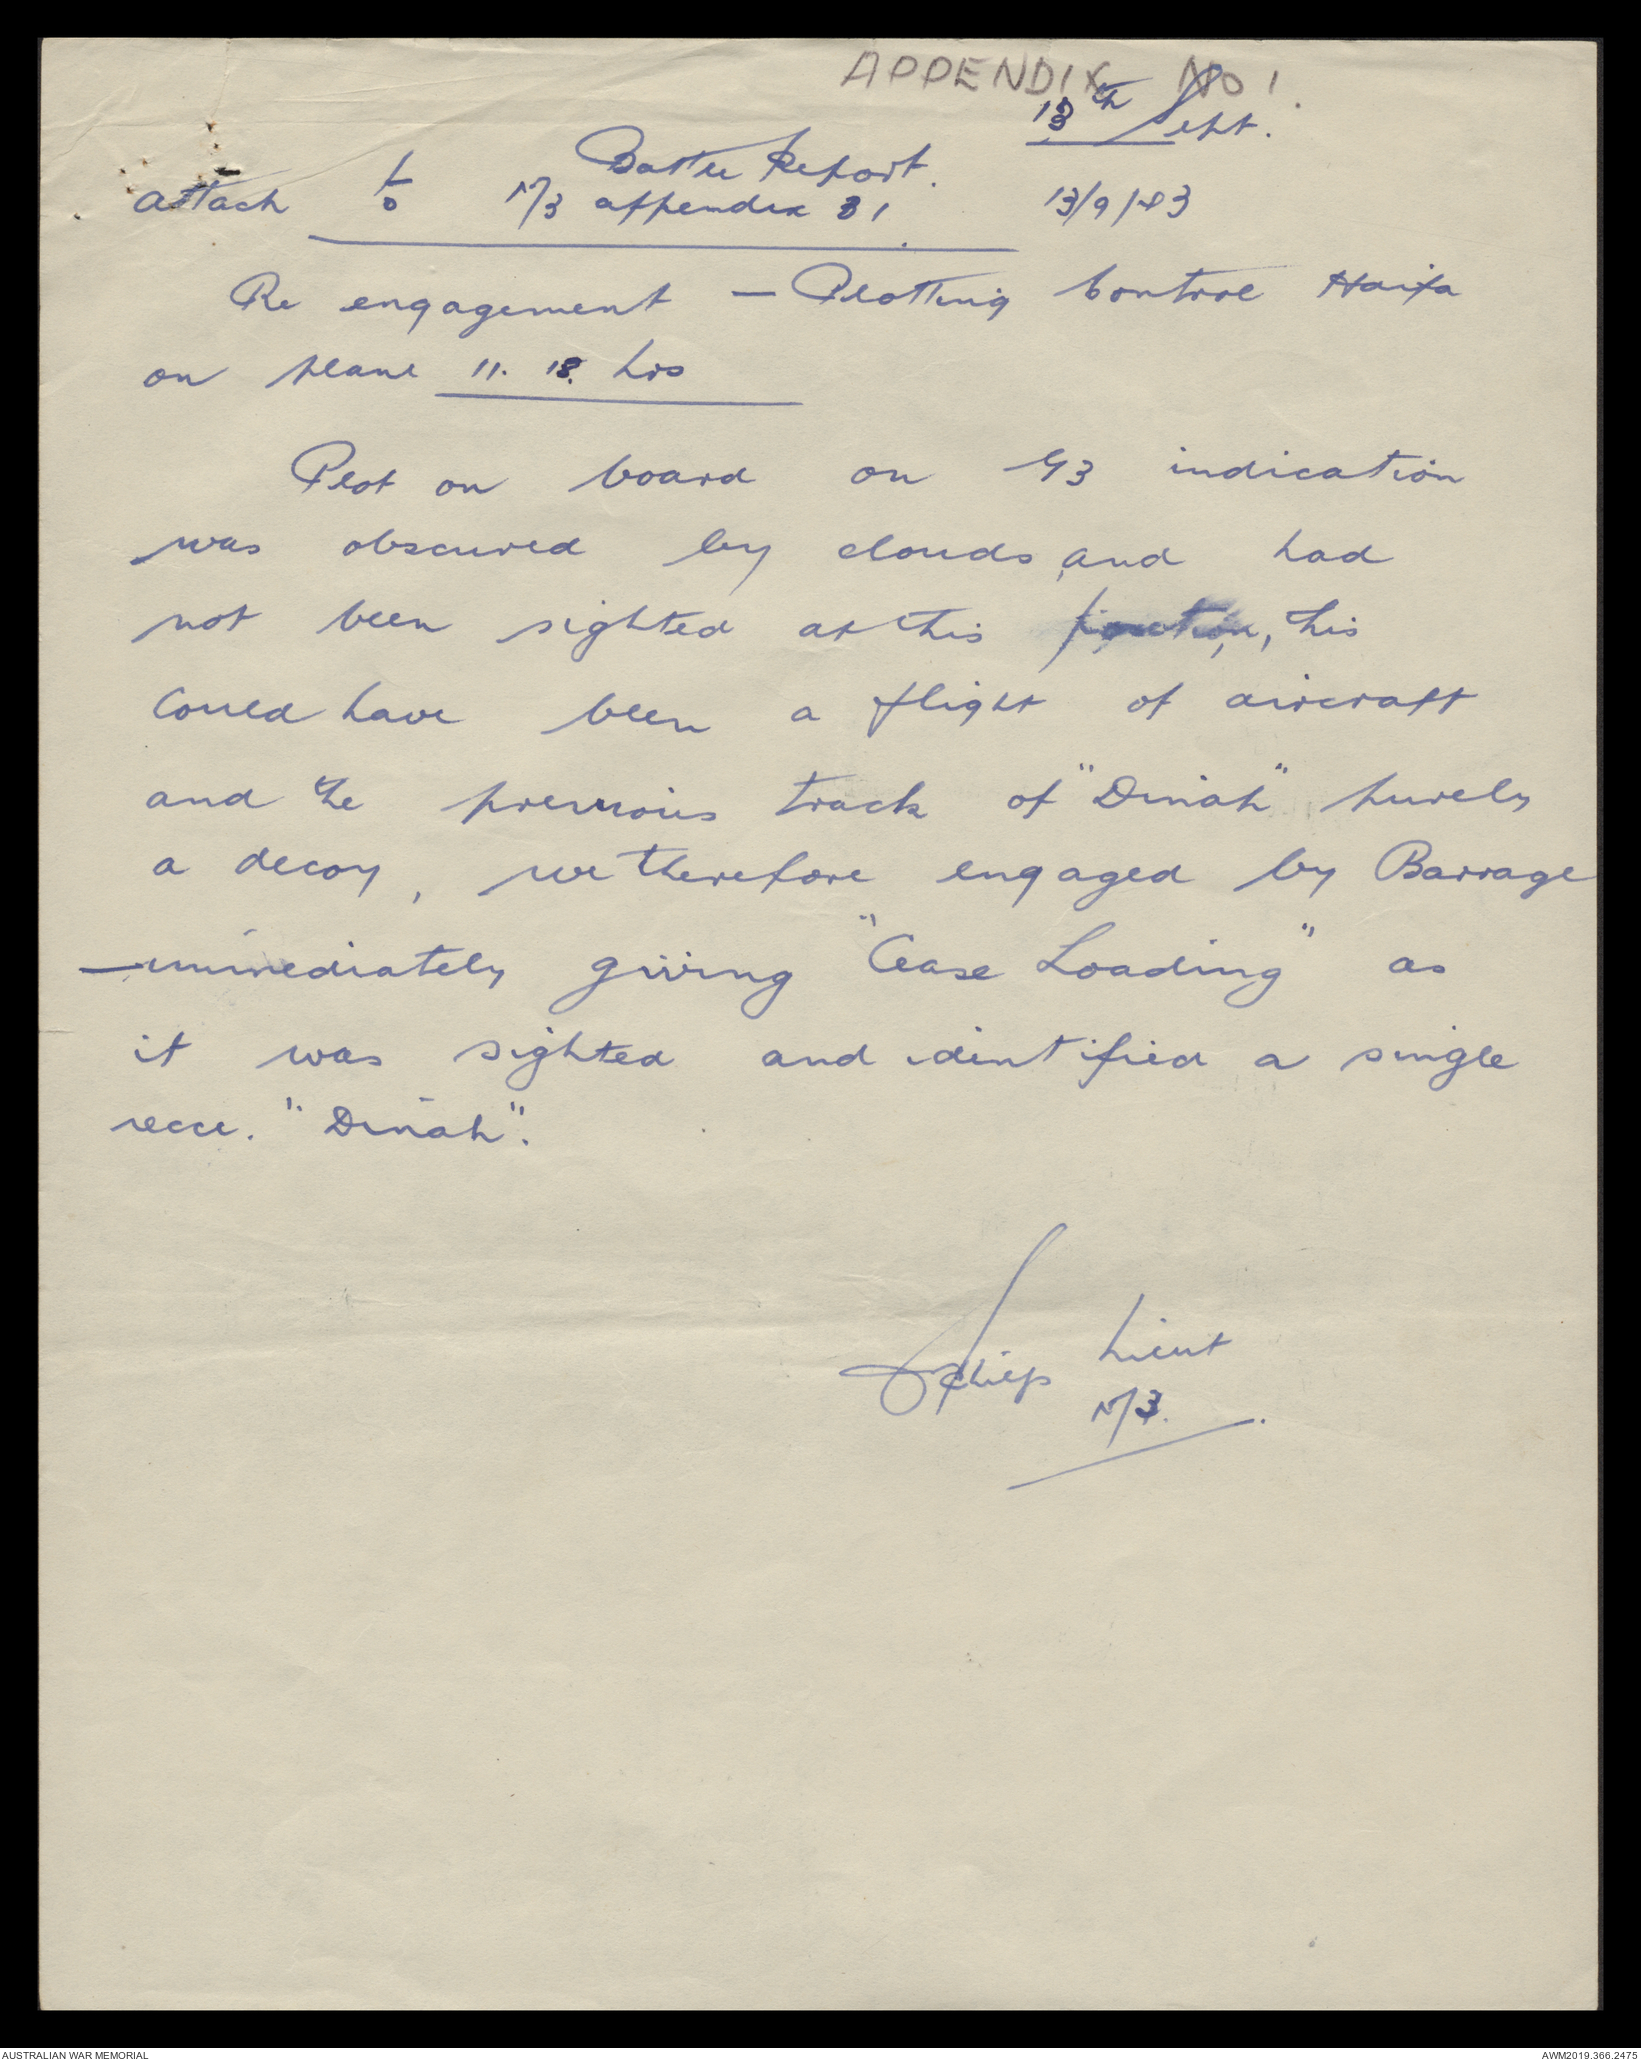 APPENDIX NO 1.
13th Sept.
Battle Report.
attach to N/3 appendix 31 13/9/43
Re engagement — Plotting Control Haifa
on plane 11. 18. hrs
Plot on board on G3 indication
was obscured by clouds, and had
not been sighted at this position, this
could have been a flight of aircraft
and the previous track of "Dinah" purely
a decoy, we therefore engaged by Barrage
— immediately giving "Cease Loading" as
it was sighted and identified a single
recce. "Dinah".
Lieut
N/3.
AUSTRALIAN WAR MEMORIAL
AWM2019.366.2475